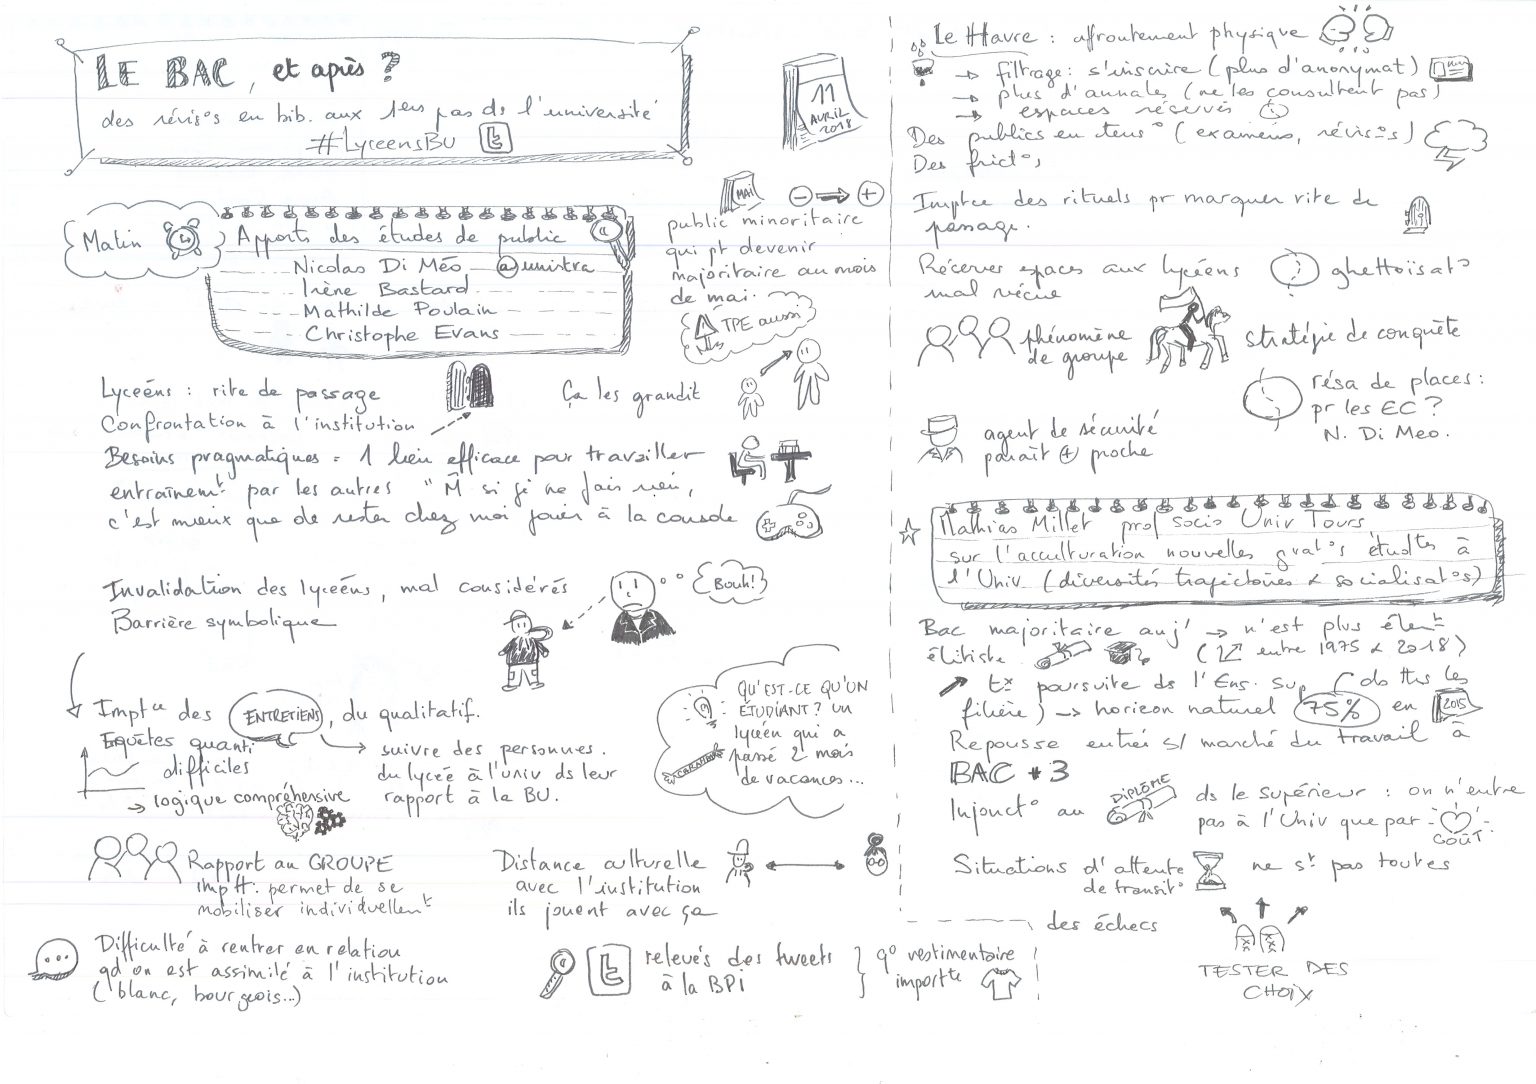 LE BAC, et après ?
des révis°s en bib. aux 1ers pas ds l'université
#LyceensBU
11
AVRIL
2018
Matin
Apports des études de public
Nicolas Di Méo @unistra
Irène Bastard
Mathilde Poulain
Christophe Evans
MAI
- → +
public minoritaire
qui pt devenir
majoritaire au mois
de mai.
TPE aussi
Lycéens : rite de passage
Confrontation à l'institution
Ça les grandit
Besoins pragmatiques = 1 lieu efficace pour travailler
entraînemt par les autres "M̂ si je ne fais rien,
c'est mieux que de rester chez moi jouer à la console
Invalidation des lycéens, mal considérés
Barrière symbolique
Bouh!
Imptce des ENTRETIENS, du qualitatif.
Enquêtes quanti
difficiles
→ logique compréhensive
→ suivre des personnes.
du lycée à l'univ ds leur
rapport à la BU.
QU'EST-CE QU'UN
ÉTUDIANT ? UN
lycéen qui a
passé 2 mois
de vacances...
CARAMBAR
Rapport au GROUPE
imptt. permet de se
mobiliser individuellemt
Distance culturelle
avec l'institution
ils jouent avec ça
Difficulté à rentrer en relation
qd on est assimilé à l'institution
(blanc, bourgeois...)
relevés des tweets
à la BPi
q° vestimentaire
importte
Le Havre : affrontement physique
→ filtrage : s'inscrire (plus d'anonymat)
→ plus d'annales (ne les consultent pas)
→ espaces réservés
Des publics en tens° (examens, révis°s)
Des frict°s
Imptce des rituels pr marquer rite de
passage.
Réserver espaces aux lycéens
mal vécue
ghettoïsat°
phénomène
de groupe
stratégie de conquête
résa de places :
pr les EC ?
N. Di Meo.
agent de sécurité
paraît + proche
Mathias Millet prof socio Univ Tours
sur l'acculturation nouvelles gnrat°s étudtes à
l'Univ (diversités trajectoires & socialisat°s)
Bac majoritaire auj' → n'est plus élémt
élitiste
( entre 1975 & 2018)
tx poursuite ds l'Ens. Sup (ds ttes les
filière) → horizon naturel 75% en 2015
Repousse entrée s/ marché du travail à
BAC +3
Injonct° au DIPLÔME ds le supérieur : on n'entre
pas à l'Univ que par
GOÛT
Situations d'attente
de transit°
ne st pas toutes
des échecs
TESTER DES
CHOIX